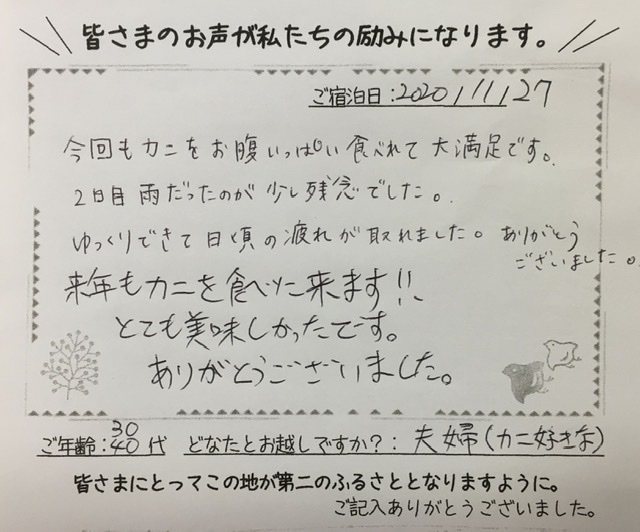 皆さまのお声が私たちの励みになります。
ご宿泊日:2020/11/27
今回もカニをお腹いっぱい食べれて大満足です。
2日目雨だったのが少し残念でした。
ゆっくりできて日頃の疲れが取れました。ありがとう
ございました。
来年もカニを食べに来ます!!
とても美味しかったです。
ありがとうございました。
30
ご年齢:40代 どなたとお越しですか?:夫婦(カニ好きな)
皆さまにとってこの地が第二のふるさととなりますように。
ご記入ありがとうございました。